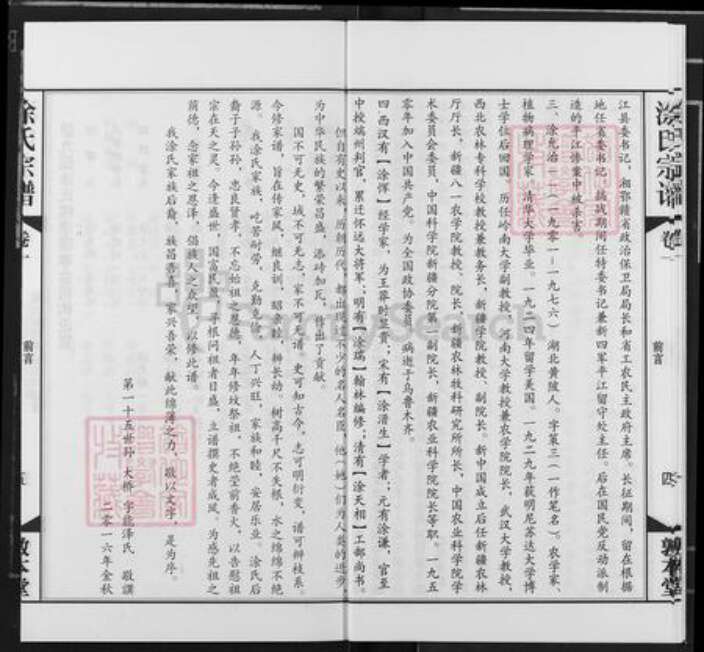 江县委书记，湘鄂赣省政治保卫局局长和省工农民主政府主席。长征期间，留在根据
地任省委书记，抗战期间任特委书记兼新四军平江留守处主任。后在国民党反动派制
造的平江惨案中被杀害。
三、涂允治——（一九〇一—一九七六）湖北黄陂人。字策三（一作笔名）。农学家、
植物病理学家，清华大学毕业。一九二四年留学美国。一九二九年获明尼苏达大学博
士学位后回国，历任岭南大学副教授，河南大学教授兼农学院院长，武汉大学教授，
西北农林专科学校教授兼教务长，新疆学院教授、副院长。新中国成立后任新疆农林
厅厅长，新疆八一农学院教授、院长，新疆农林牧科研究所所长，中国农业科学院学
术委员会委员，中国科学院新疆分院第一副院长，新疆农业科学院院长等职。一九五
零年加入中国共产党。为全国政协委员。病逝于乌鲁木齐。
四西汉有【涂恽】经学家，为王莽时显贵；宋有【涂潜生】学者，元有涂谦，官至
中授端州判官，累迁怀远大将军；明有【涂瑞】翰林编修；清有【涂天相】工部尚书。
但自有史以来，历朝历代，都出现过不少的名人名臣，他（她）们为人类的进步，
为中华民族的繁荣昌盛，添砖加瓦，作出了贡献。
国不可无史，域不可无志，家不可无谱。史可知古今，志可明衍变，谱可辨枝系。
今修家谱，旨在传家风，继良训，昭亲睦，辨长幼。树高千尺不失根，水之绵绵不绝
源。我涂氏家族，吃苦耐劳，克勤克俭，人丁兴旺，家族和睦，安居乐业。涂氏后
裔子子孙孙，忠良贤孝，不忘始祖之恩德，年年修坟祭祖，不绝茔前香火，以告慰祖
宗在天之灵。今逢盛世，国富民殷，寻根问祖者日盛，立谱撰史者成风。为感先祖之
荫德，念家祖之恩泽，偿族人之众望，以修此谱。
我涂氏家族后裔，族昌吾喜，家兴吾荣，献此绵薄之力，敬以文字，是为序。
第一十五世孙 大桥 字能泽氏 敬撰
二零一六年金秋
涂氏宗谱
卷一
前言
四
敦本堂
涂氏宗谱
卷一
前言
五
敦本堂
FamilySearch